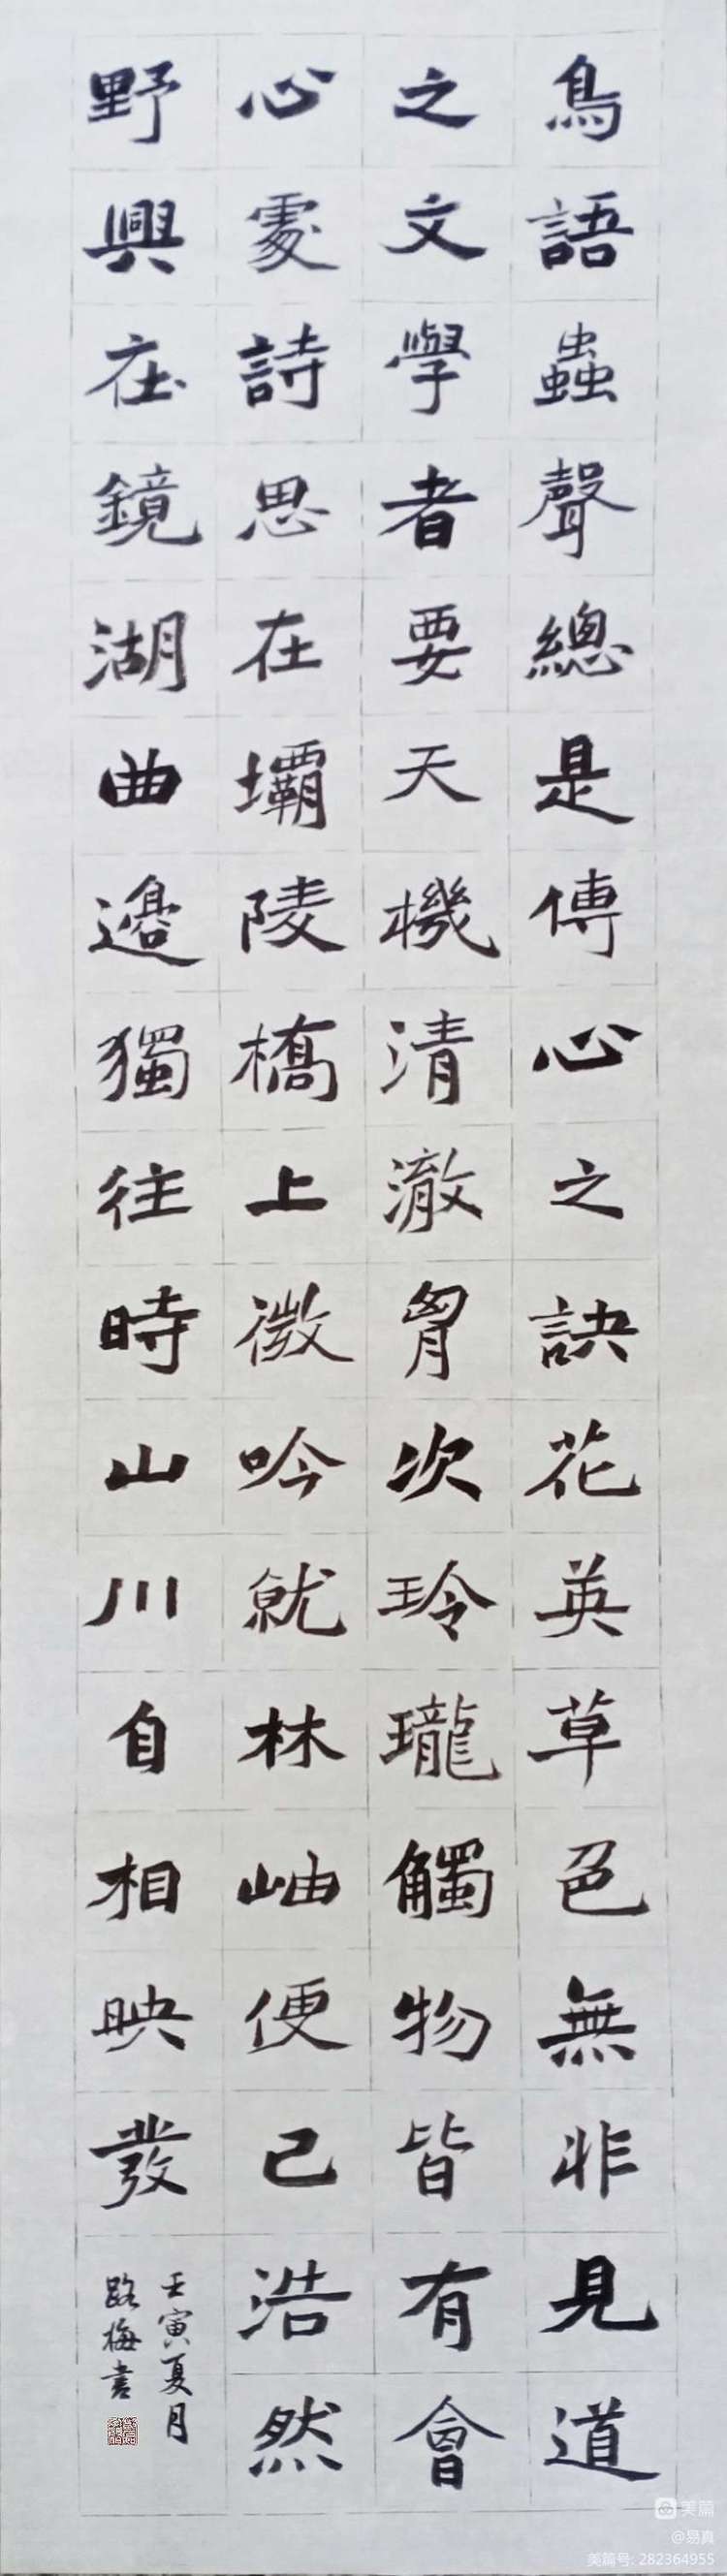 鳥語蟲聲總是傳心之訣花英草色無非見道
之文學者要天機清澈胷次玲瓏觸物皆有會
心處詩思在壩陵橋上微吟就林岫便已浩然
野興在鏡湖曲邊獨往時山川自相映發
壬寅夏月
路梅書
美篇
@易真
美篇号: 282364955